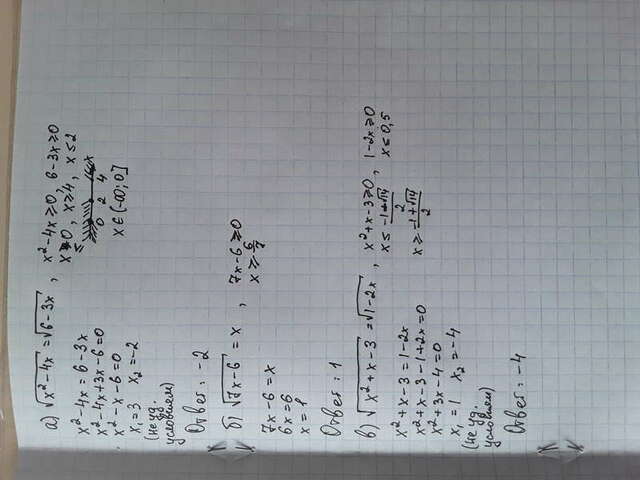 а) √x²-4x = √6-3x, x²-4x≥0, 6-3x≥0
x²-4x=6-3x x≤0, x≥4, x≤2
x²-4x+3x-6=0
x²-x-6=0 0 2 4 x
x₁=3 x₂=-2 x∈(-∞;0]
(не уд.
условием)
Ответ: -2
б) √7x-6 = x, 7x-6≥0
x≥6/7
7x-6=x
6x=6
x=1
Ответ: 1
в) √x²+x-3 = √1-2x, x²+x-3≥0, 1-2x≥0
x²+x-3=1-2x x≤ -1+√14/2, x≤0,5
x²+x-3-1+2x=0 x≥ -1+√14/2
x²+3x-4=0
x₁=1 x₂=-4
(не уд.
условием)
Ответ: -4